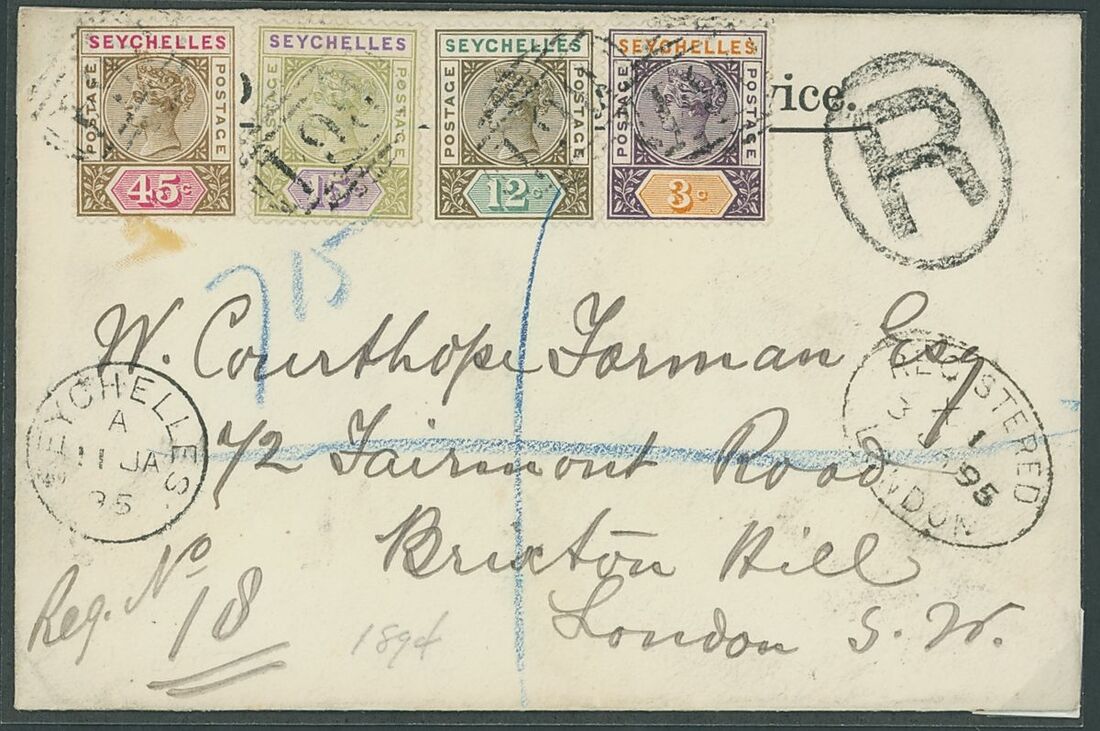 SEYCHELLES SEYCHELLES SEYCHELLES SEYCHELLES
POSTAGE POSTAGE POSTAGE POSTAGE POSTAGE POSTAGE POSTAGE POSTAGE
45c 15c 12c 3c
vice.
R
715
W. Courthope Forman Esq
72 Fairmont Road
Brixton Hill
London S. W.
SEYCHELLES
A
11 JA
95
REGISTERED
95
LONDON
Reg. No
18
1894